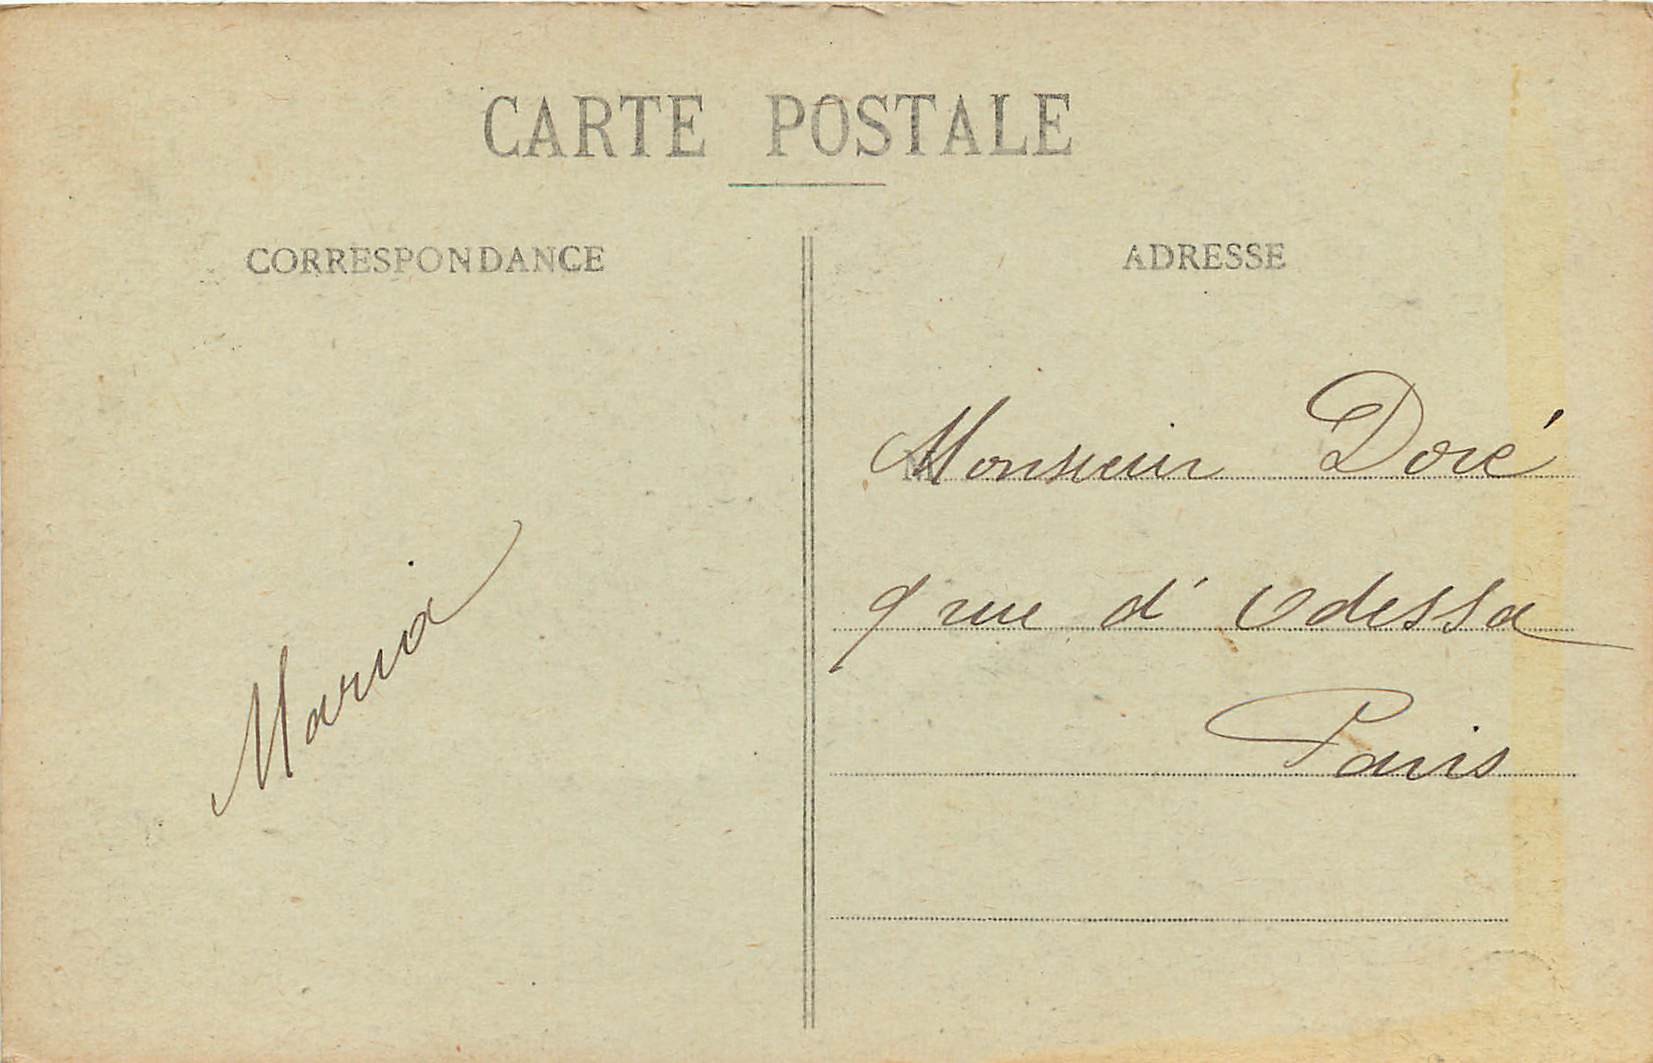 CARTE POSTALE
CORRESPONDANCE
ADRESSE
Maria
M
Monsieur Doré
9 rue d'Odessa
Paris